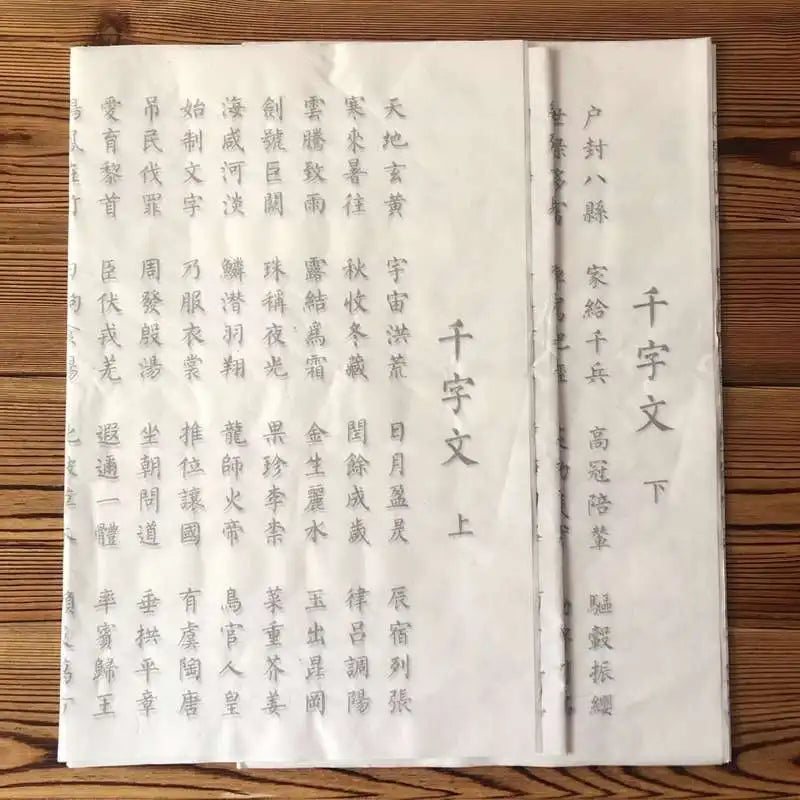 千字文 上
天地玄黃 宇宙洪荒 日月盈昃 辰宿列張
寒來暑往 秋收冬藏 閏餘成歲 律呂調陽
雲騰致雨 露結爲霜 金生麗水 玉出昆岡
劍號巨闕 珠稱夜光 果珍李柰 菜重芥姜
海咸河淡 鱗潜羽翔 龍師火帝 鳥官人皇
始制文字 乃服衣裳 推位讓國 有虞陶唐
吊民伐罪 周發殷湯 坐朝問道 垂拱平章
愛育黎首 臣伏戎羌 遐邇一體 率賓歸王
千字文 下
户封八縣 家給千兵 高冠陪輦 驅轂振纓